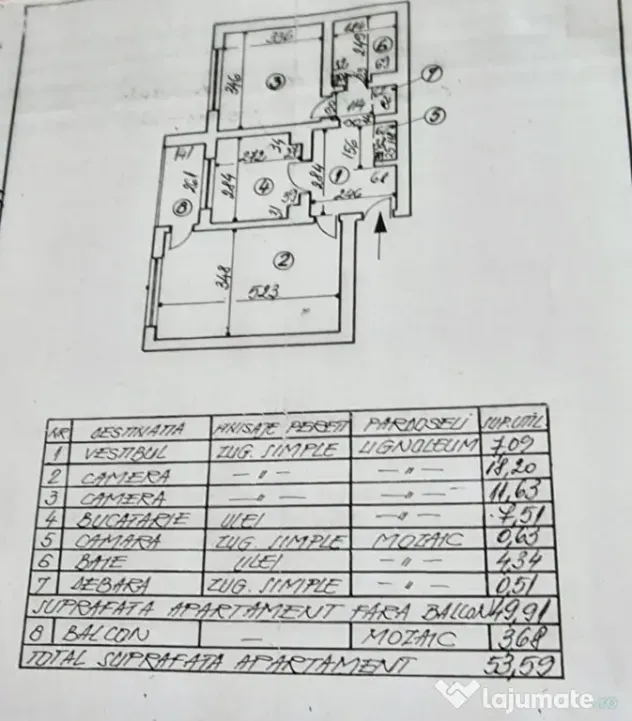 336
249
6
346
3
7
5
156
141
272
34
284
4
284
1
68
261
8
31
246
348
2
523
NR. DESTINATIA FINISAJE PERETI PARDOSELI SUP. UTIL
1 VESTIBUL ZUG. SIMPLE LIGNOLEUM 7,09
2 CAMERA — " — — " — 18,20
3 CAMERA — " — — " — 11,63
4 BUCATARIE ULEI — " — 7,51
5 CAMARA ZUG. SIMPLE MOZAIC 0,63
6 BAIE ULEI — " — 4,34
7 DEBARA ZUG. SIMPLE — " — 0,51
SUPRAFATA APARTAMENT FARA BALCON 49,91
8 BALCON — MOZAIC 3,68
TOTAL SUPRAFATA APARTAMENT 53,59
lajumate.ro